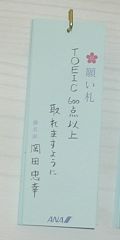 願い札
TOEIC 600点以上
取れますように
岡田忠幸
ANA